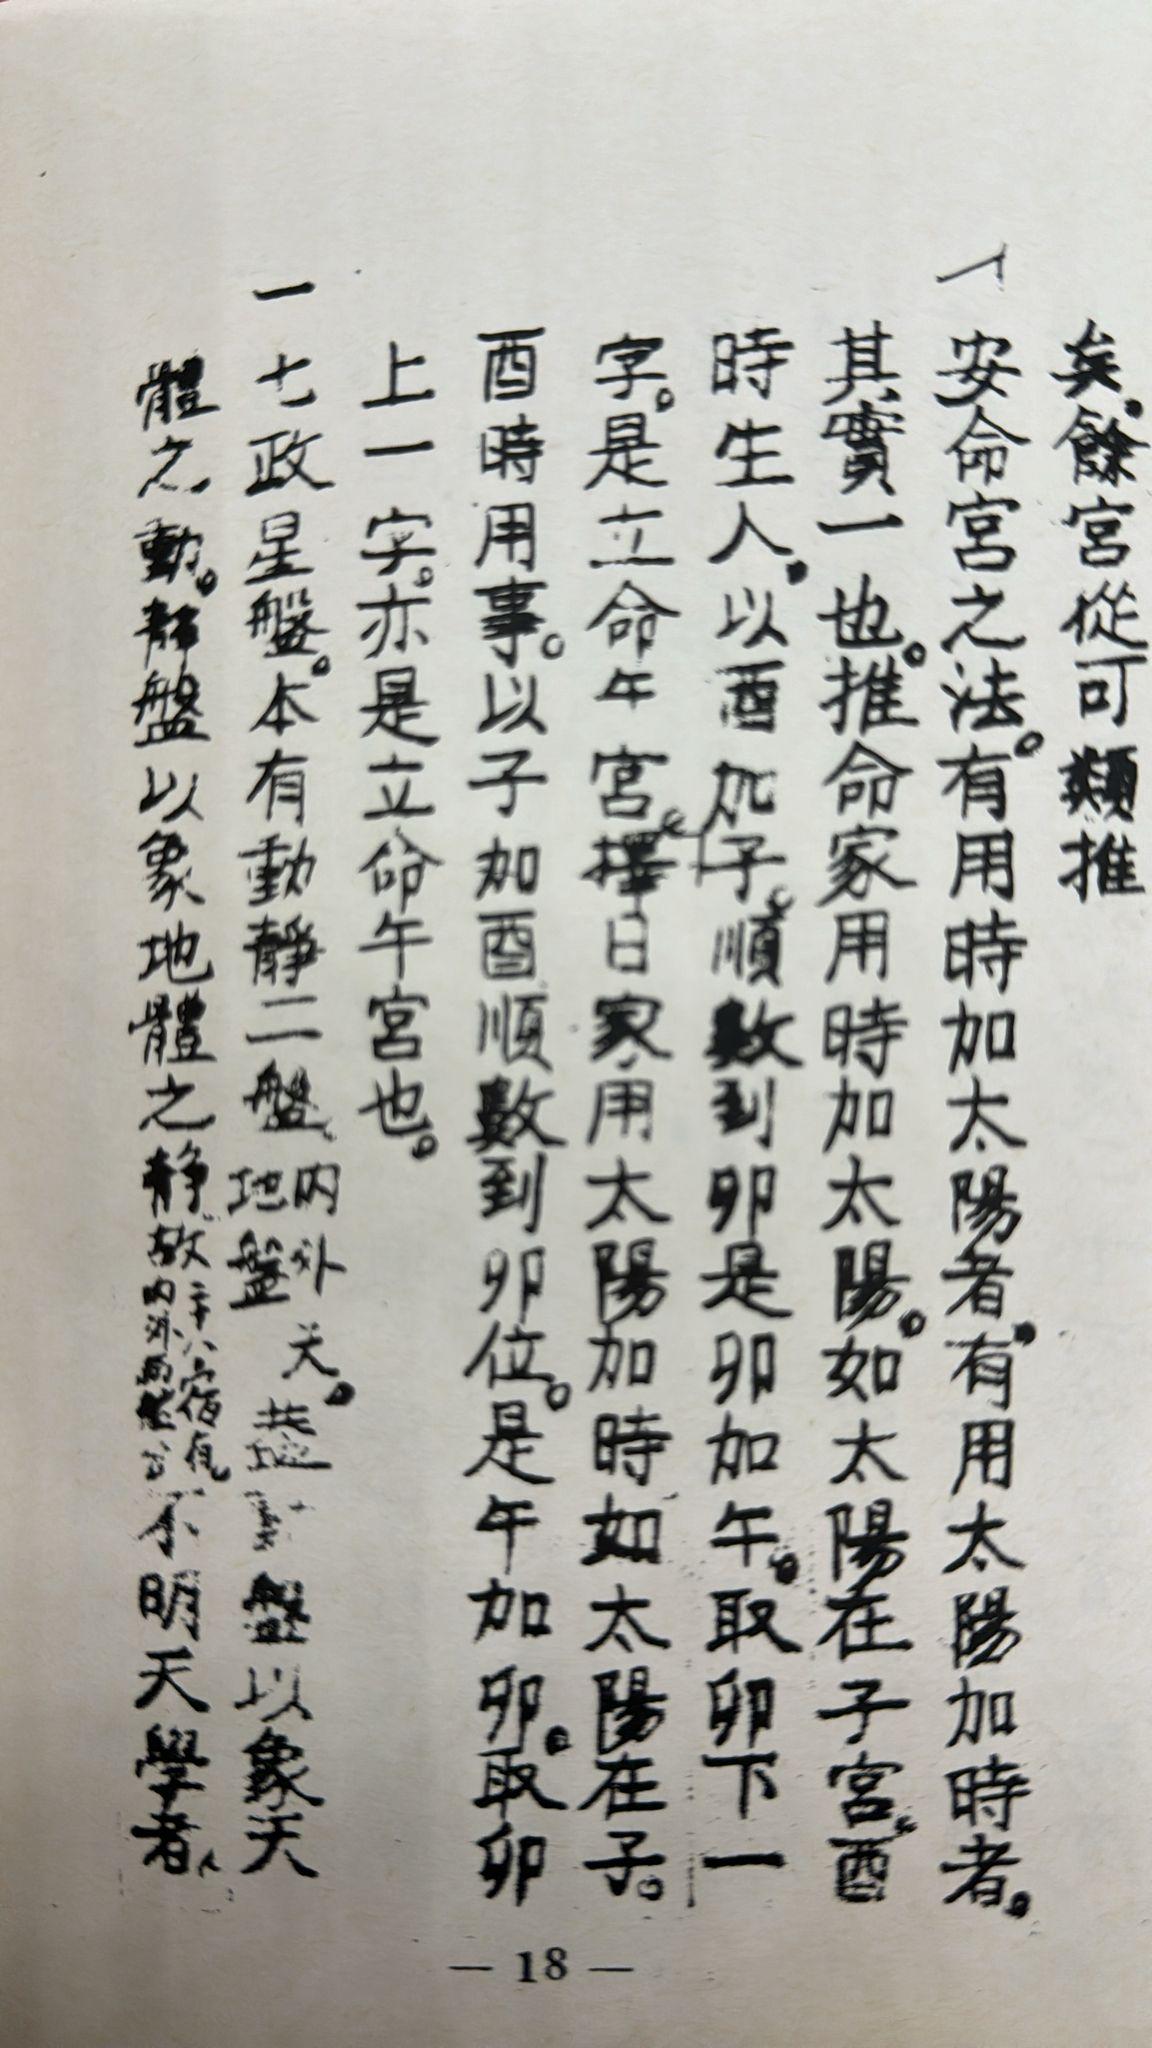 矣。餘宮從可類推
一安命宮之法。有用時加太陽者。有用太陽加時者。
其實一也。推命家用時加太陽。如太陽在子宮。酉
時生人。以酉加子。順數到卯是卯加午。取卯下一
字。是立命午宮。擇日家用太陽加時如太陽在子。
酉時用事。以子加酉順數到卯位。是午加卯。取卯
上一字。亦是立命午宮也。
一七政星盤。本有動靜二盤內外天。地盤盤以象天
體之動。靜盤以象地體之静故二十八宿內外不明天學者
— 18 —